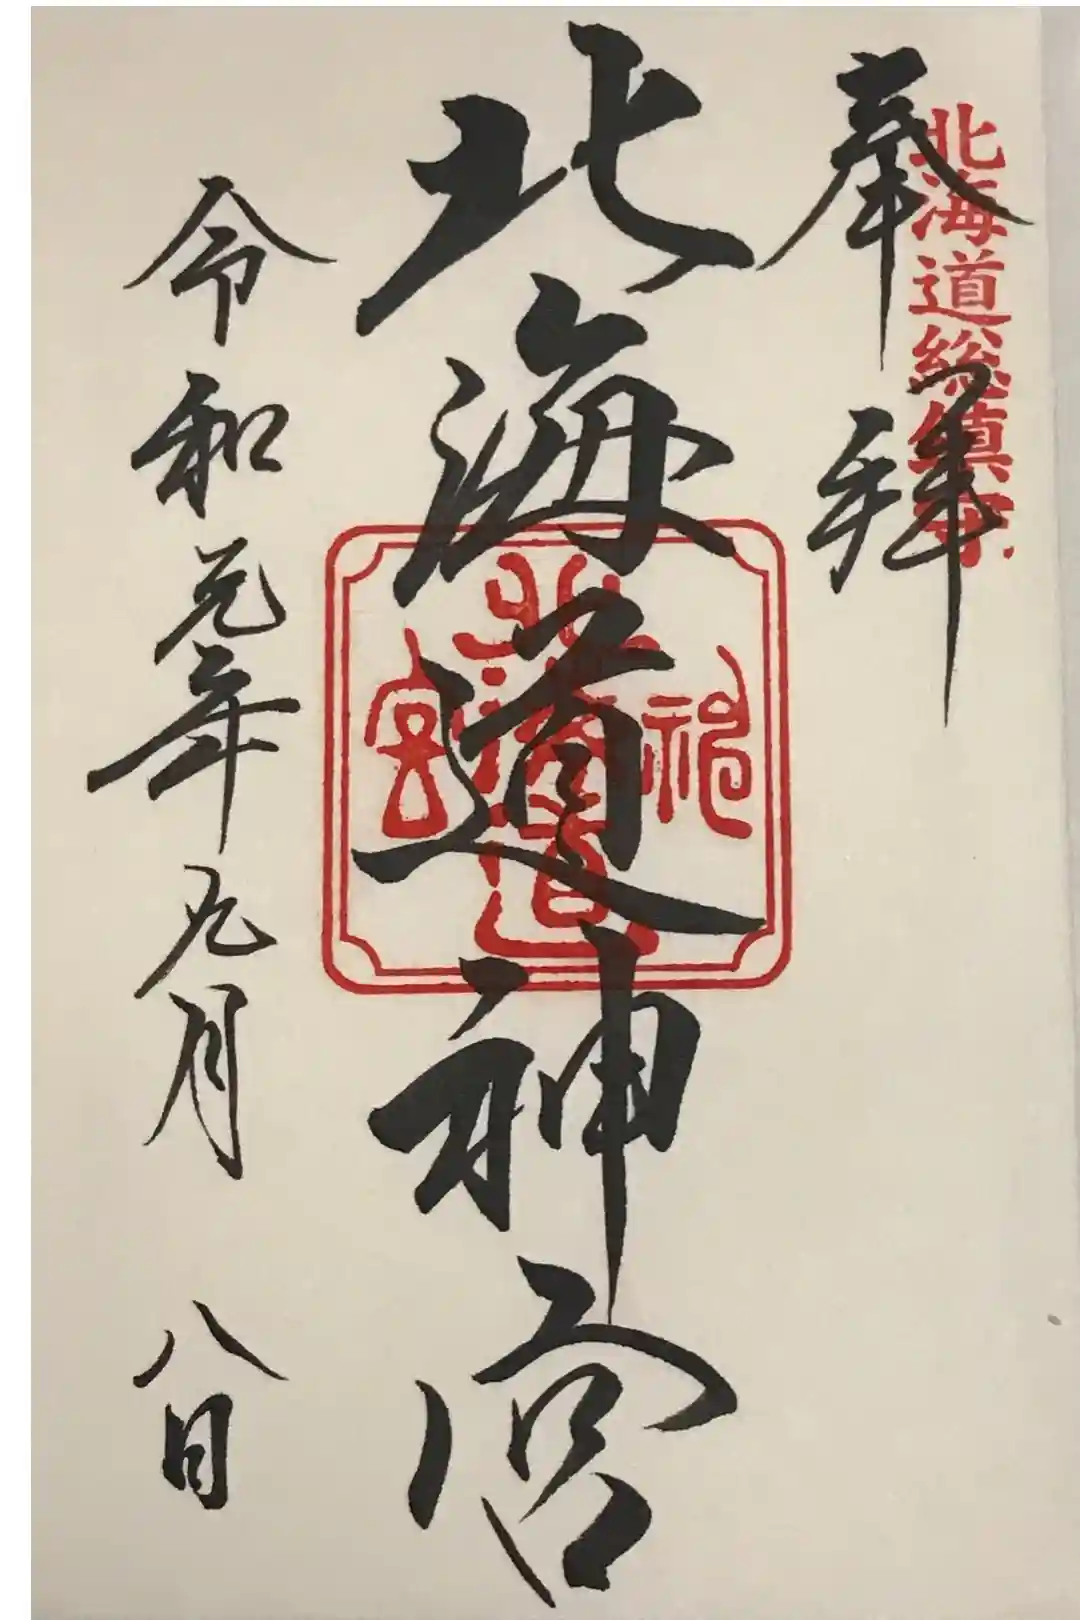 北海道総鎮守
奉拝
北海道神宮
北海道神宮
令和元年九月八日